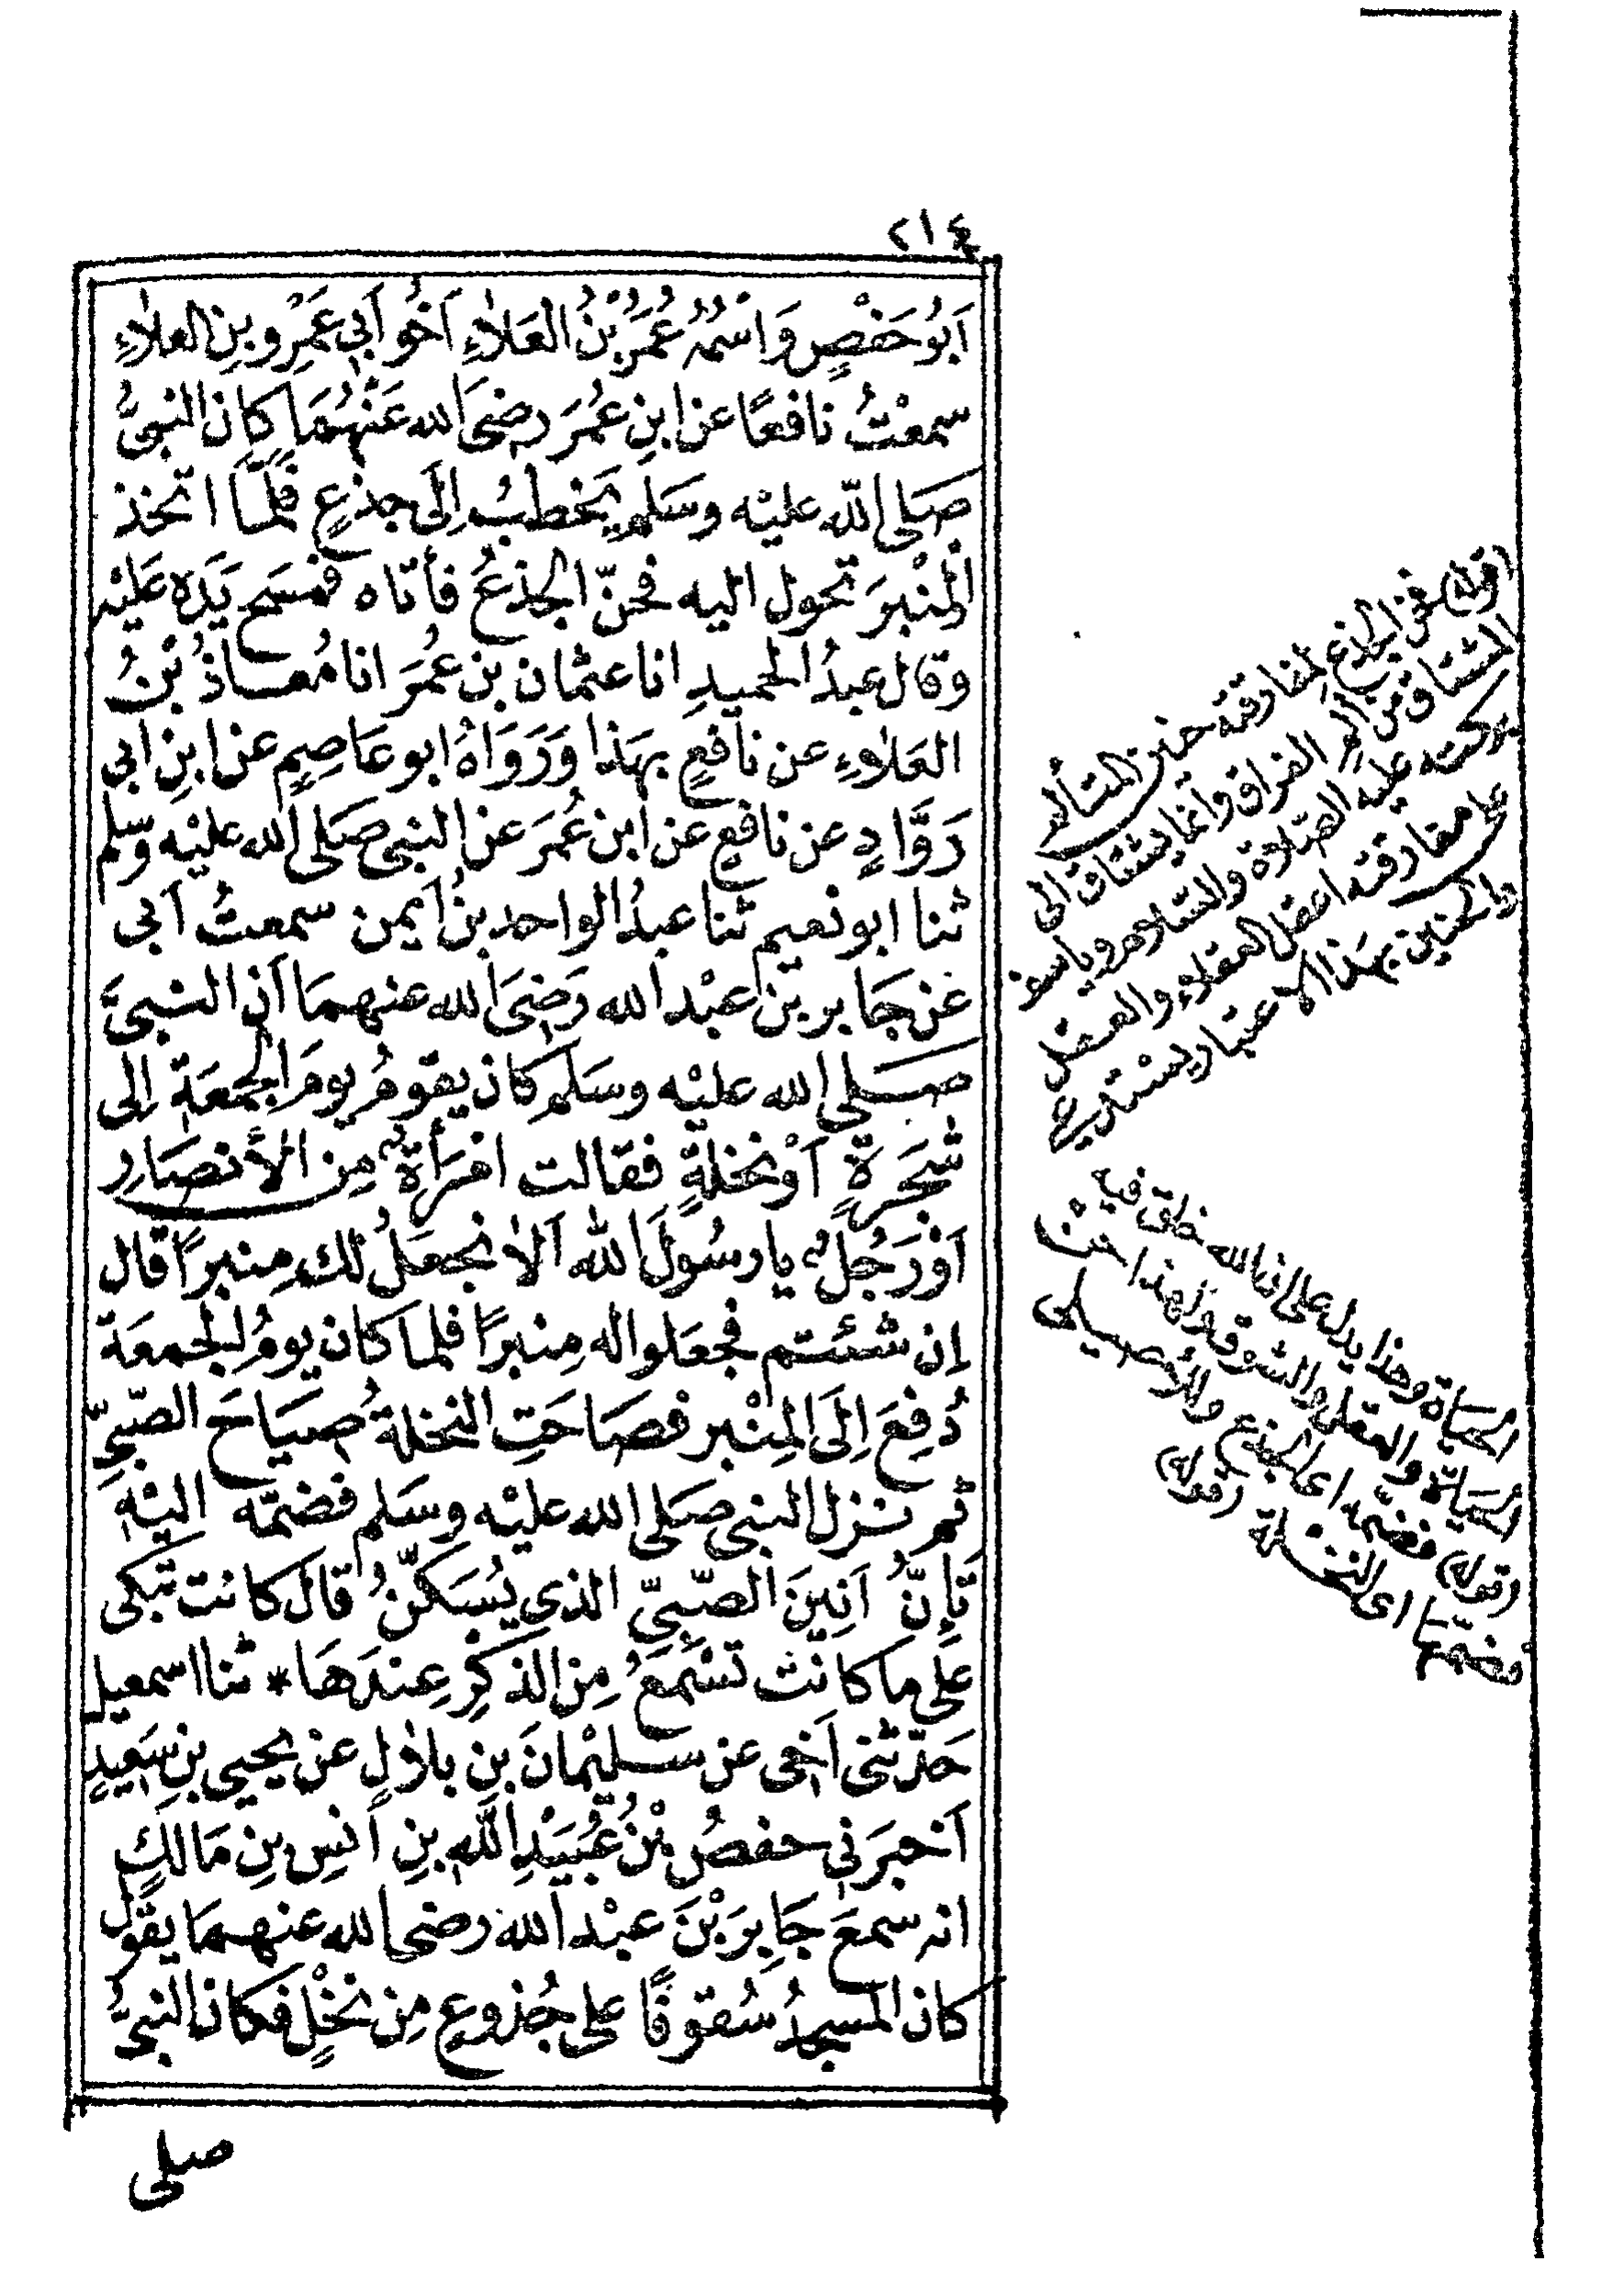 ٢١٤
اَبُو حَفْصٍ وَاسْمُهُ عُمَرُ بْنُ العَلَاءِ اَخُو اَبِي عَمْرِو بنِ العلاءِ
سمعْتُ نافعًا عن ابنِ عُمَرَ رضىَ الله عَنْهُمَا كان النبىُّ
صَلى اللّه عليْه وسَلم يَخطبُ اِلَى جذعٍ فَلَمَّا اتخذ
المِنْبرَ تحول اليه فحنّ الجذعُ فأتاه فمسَح يَدَه عَليْه
وقال عبدُ الحميدِ انا عثمان بن عُمَرَ انا مُعَاذُ بْنُ
العَلاءِ عن نافعٍ بهَذا وَرَوَاهُ ابو عَاصِمٍ عن ابنِ ابى
رَوَّادٍ عن نافعٍ عن ابن عُمَرَ عن النبى صَلى الله عليْه وسلم
ثنا ابو نعيم ثنا عبدُ الواحد بنُ اَيمن سمعتُ اَبى
عن جَابر بن عبْد الله رَضىَ الله عنهمَا اَن النبىَّ
صَلى الله عليْه وسَلم كان يقومُ يومَ الجمعَة اِلى
شَجَرَةٍ اَوْ نخلةٍ فقالت امْرَأةٌ مِن الأنصَارِ
اَوْ رَجُلٌ يا رسُولَ الله اَلا نجعَلُ لك مِنبرًا قال
اِن شئتم فجعَلوا له مِنبرًا فلما كان يومُ الجمعَة
دُفِعَ اِلَى المِنْبر فصَاحَتِ النخلةُ صِيَاحَ الصّبىِّ
ثم نزل النبى صَلى الله عليْه وسَلم فضمّه اليْهِ
تَإِنُّ اَنِينَ الصّبِىِّ الذى يُسَكّنُ قال كانت تبكى
على ما كانَتْ تسْمَعُ مِن الذكرِ عِندَهَا * ثنا اسمعيل
حَدّثنى اَخى عن سليْمانَ بنِ بلالٍ عنْ يحيى بنِ سَعِيدٍ
اَخبرَنى حفصُ بْنُ عُبَيْدِ اللّهِ بنِ اَنسِ بنِ مَالكٍ
انه سمعَ جَابِرَ بْنَ عبْد الله رضى الله عنهمَا يقول
كان المسجدُ سُقوفًا على جُذوعٍ مِن نخْلٍ فكان النبىُّ
صلى
(قوله) فحن الجذع لمفارقته حنين المتألم
المشتاق من الم الفراق وانما يشتاق الى
بركته عليه الصّلاة والسّلام وياسف
على مفارقته اعقل العقلاء والعقل
والحنين بهَذا الاعتبار يسْتدعى
الحيَاة وهذا يدل على ان الله خلق فيه
الحيَاة والعقل والشوق ولهذا حنّ
(قوله) فضمّه اى الجذع وللأصيلى
فضمّها اى النخلة (قوله)